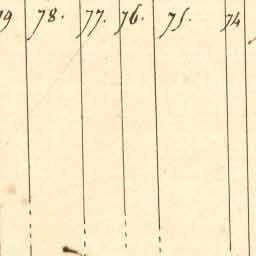 79 78. 77. 76. 75. 74